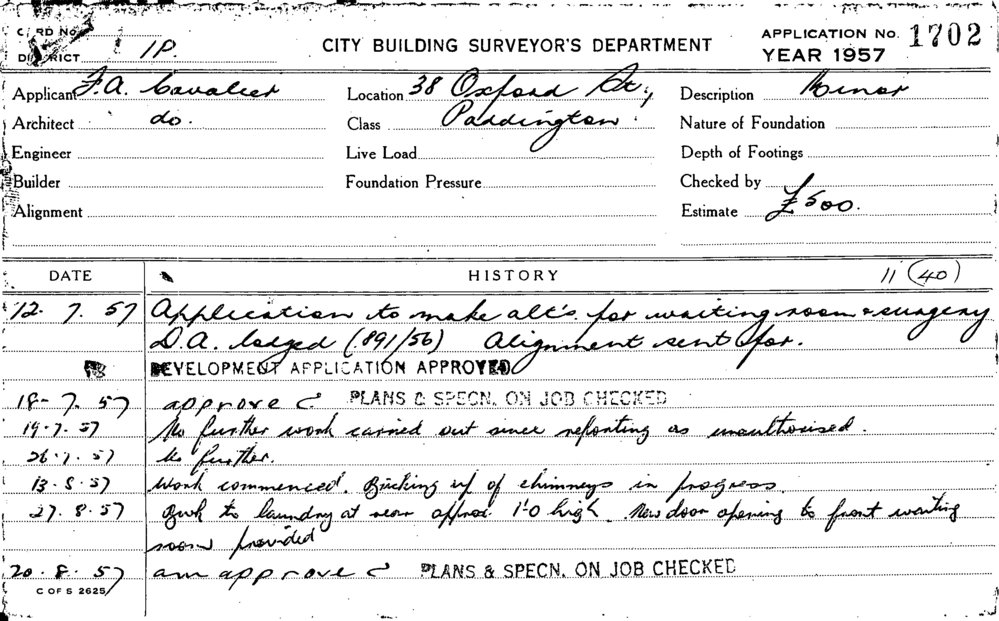 CARD No.
DISTRICT 1P.
CITY BUILDING SURVEYOR'S DEPARTMENT
APPLICATION No. 1702
YEAR 1957
Applicant F.A. Cavalier
Location 38 Oxford St.,
Description Minor
Architect do.
Class Paddington
Nature of Foundation
Engineer
Live Load
Depth of Footings
Builder
Foundation Pressure
Checked by
Alignment
Estimate £500.
DATE
HISTORY
11 (40)
12. 7. 57 Application to make alt's. for waiting room & surgery
D.A. lodged (891/56) Alignment sent for.
DEVELOPMENT APPLICATION APPROVED
18-7.57 approved PLANS & SPECN. ON JOB CHECKED
19.7.57 No further work carried out since reporting as unauthorised.
26.7.57 No further.
13.8.57 Work commenced. Bricking up of chimneys in progress.
27.8.57 Bwk to laundry at rear approx. 1'0 high. New door opening to front waiting
room provided
20.8.57 am approved PLANS & SPECN. ON JOB CHECKED
C OF S 2625